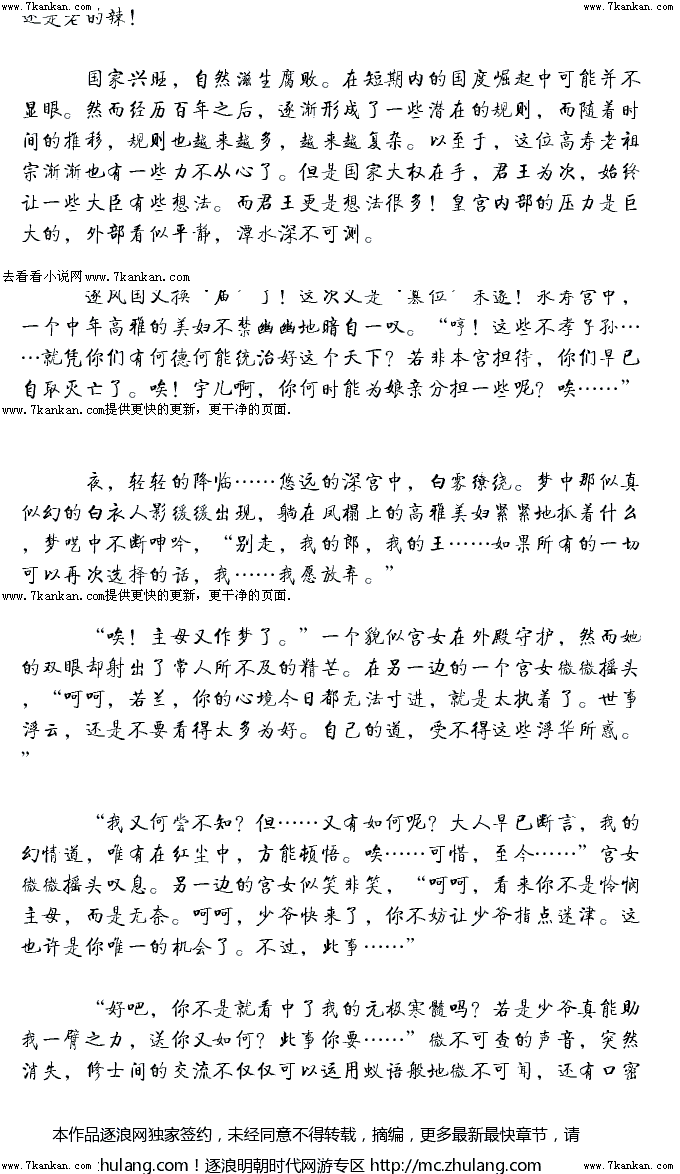 www.7kankan.com www.7kankan.com
还是老的辣！
国家兴旺，自然滋生腐败。在短期内的国度崛起中可能并不
显眼。然而经历百年之后，逐渐形成了一些潜在的规则，而随着时
间的推移，规则也越来越多，越来越复杂。以至于，这位高寿老祖
宗渐渐也有一些力不从心了。但是国家大权在手，君王为次，始终
让一些大臣有些想法。而君王更是想法很多！皇宫内部的压力是巨
大的，外部看似平静，潭水深不可测。
去看看小说网www.7kankan.com
逐风国又换“届”了！这次又是“篡位”未遂！永寿宫中，
一个中年高雅的美妇不禁幽幽地暗自一叹。“哼！这些不孝子孙…
…就凭你们有何德何能统治好这个天下？若非本宫担待，你们早已
自取灭亡了。唉！宇儿啊，你何时能为娘亲分担一些呢？唉……”
www.7kankan.com提供更快的更新，更干净的页面.
夜，轻轻的降临……悠远的深宫中，白雾缭绕。梦中那似真
似幻的白衣人影缓缓出现，躺在凤榻上的高雅美妇紧紧地抓着什么
，梦呓中不断呻吟，“别走，我的郎，我的王……如果所有的一切
可以再次选择的话，我……我愿放弃。”
www.7kankan.com提供更快的更新，更干净的页面.
“唉！主母又作梦了。”一个貌似宫女在外殿守护，然而她
的双眼却射出了常人所不及的精芒。在另一边的一个宫女微微摇头
，“呵呵，若兰，你的心境今日都无法寸进，就是太执着了。世事
浮云，还是不要看得太多为好。自己的道，受不得这些浮华所惑。
”
“我又何尝不知？但……又有如何呢？大人早已断言，我的
幻情道，唯有在红尘中，方能顿悟。唉……可惜，至今……”宫女
微微摇头叹息。另一边的宫女似笑非笑，“呵呵，看来你不是怜悯
主母，而是无奈。呵呵，少爷快来了，你不妨让少爷指点迷津。这
也许是你唯一的机会了。不过，此事……”
“好吧，你不是就看中了我的元极寒髓吗？若是少爷真能助
我一臂之力，送你又如何？此事你要……”微不可查的声音，突然
消失，修士间的交流不仅仅可以运用蚁语般地微不可闻，还有口密
本作品逐浪网独家签约，未经同意不得转载，摘编，更多最新最快章节，请
www.7kankan.com zhulang.com！逐浪明朝时代网游专区 http://mc.zhulang.com www.7kankan.com